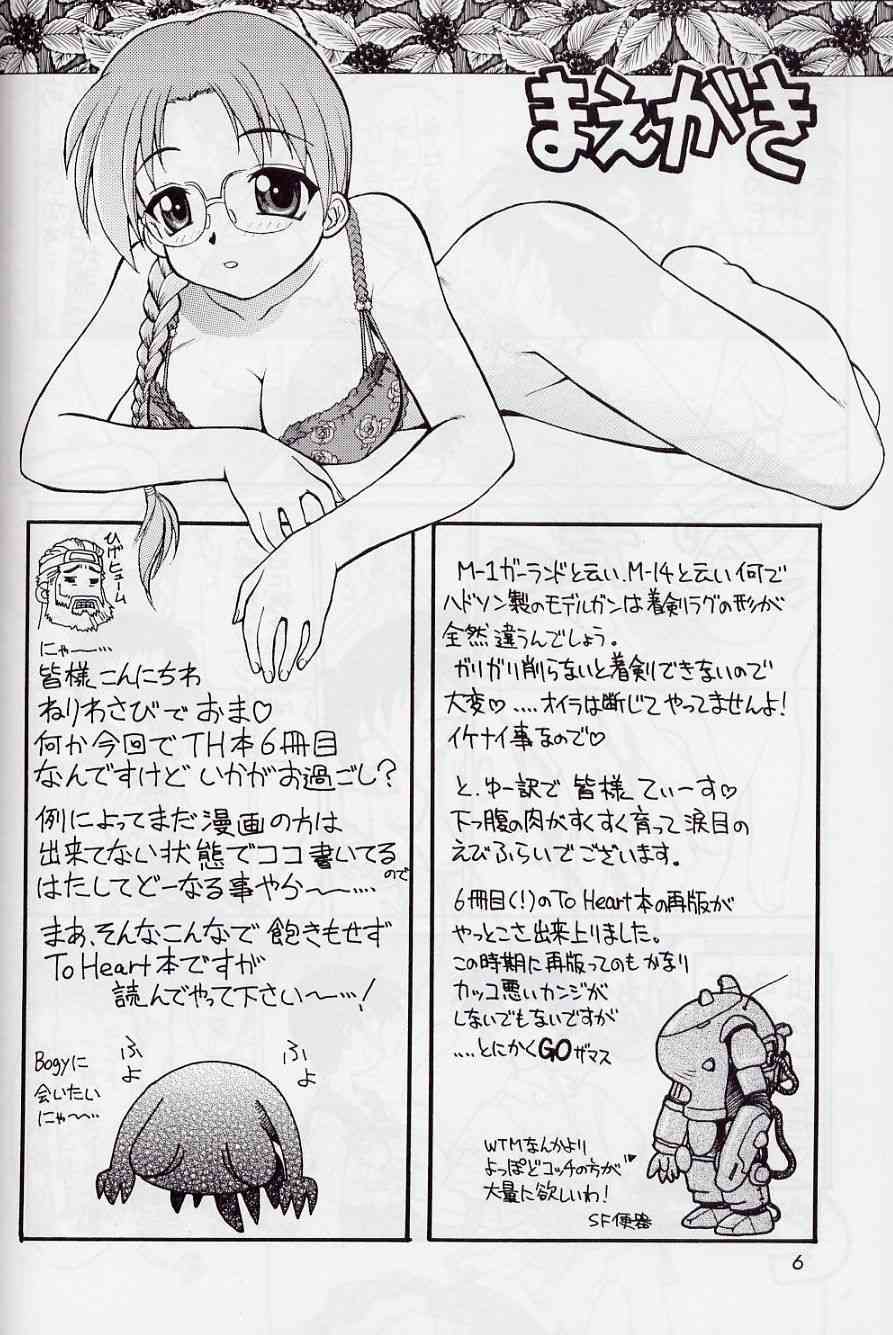 まえがき
ひげヒューム
にゃー…
皆様こんにちわ
ねりわさびでおま♡
何か今回でTH本6冊目
なんですけどいかがお過ごし?
例によってまだ漫画の方は
出来てない状態でココ書いてるので
はたしてどーなる事やら〜…
まあ、そんなこんなで飽きもせず
To Heart本ですが
読んでやって下さい〜…!
Bogyに
会いたい
にゃ〜…
ふよ
ふよ
M-1ガーランドと云い、M-14と云い何で
ハドソン製のモデルガンは着剣ラグの形が
全然違うんでしょう。
ガリガリ削らないと着剣できないので
大変♡….オイラは断じてやってませんよ!
イケナイ事なので♡
と、ゆー訳で皆様てぃーす♡
下っ腹の肉がすくすく育って涙目の
えびふらいでございます。
6冊目(!)のTo Heart本の再版が
やっとこさ出来上りました。
この時期に再版ってのもかなり
カッコ悪いカンジが
しないでもないですが
….とにかくGOザマス
WTMなんかより
よっぽどコッチの方が
大量に欲しいわ!
SF便器
6